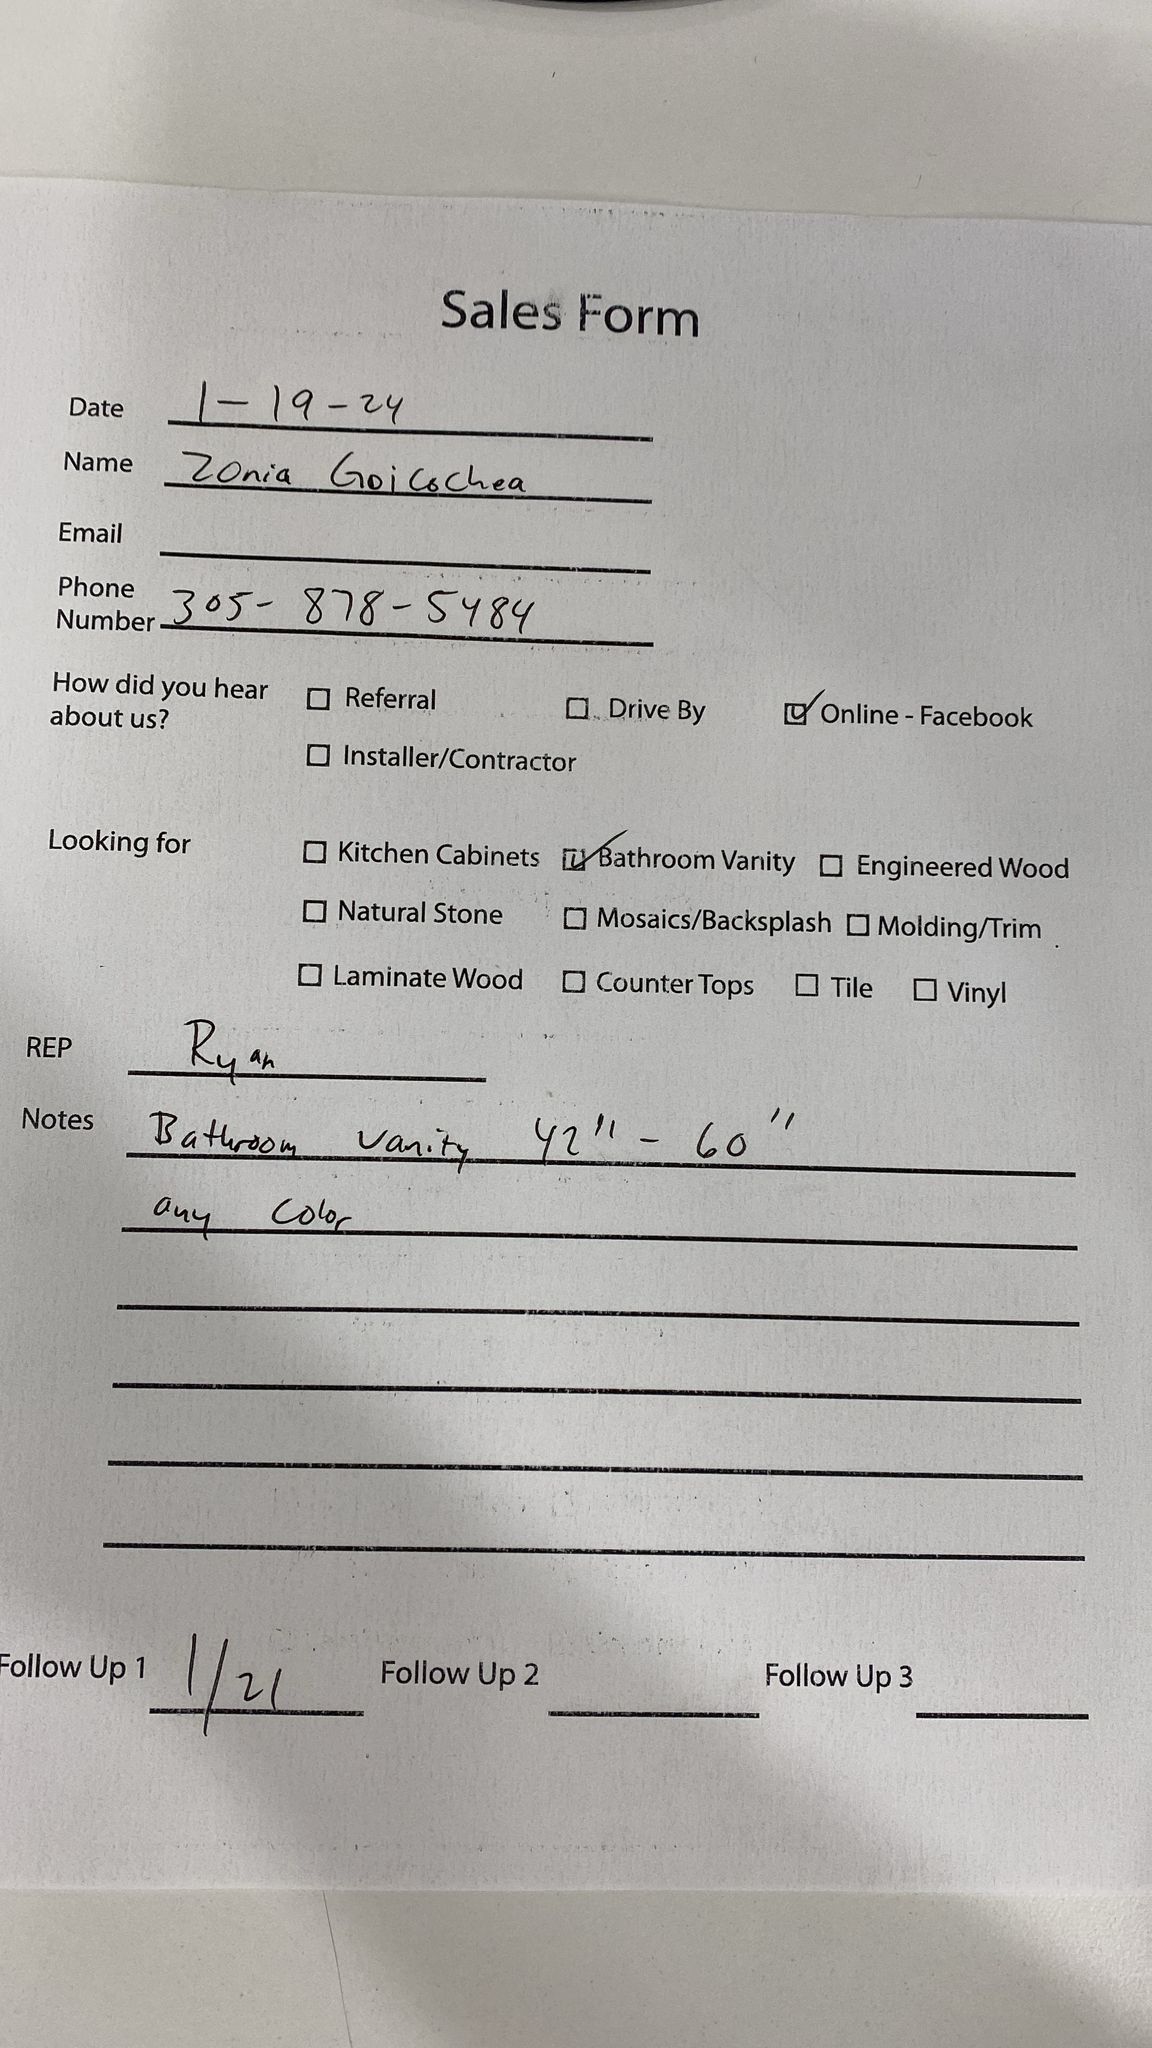 Sales Form
Date 1-19-24
Name Zonia Goicochea
Email
Phone Number 305-878-5484
How did you hear about us? ☐ Referral ☐ Drive By ☑ Online - Facebook
☐ Installer/Contractor
Looking for ☐ Kitchen Cabinets ☑ Bathroom Vanity ☐ Engineered Wood
☐ Natural Stone ☐ Mosaics/Backsplash ☐ Molding/Trim
☐ Laminate Wood ☐ Counter Tops ☐ Tile ☐ Vinyl
REP Ryan
Notes Bathroom vanity 42" - 60"
any color
Follow Up 1 1/21 Follow Up 2 Follow Up 3